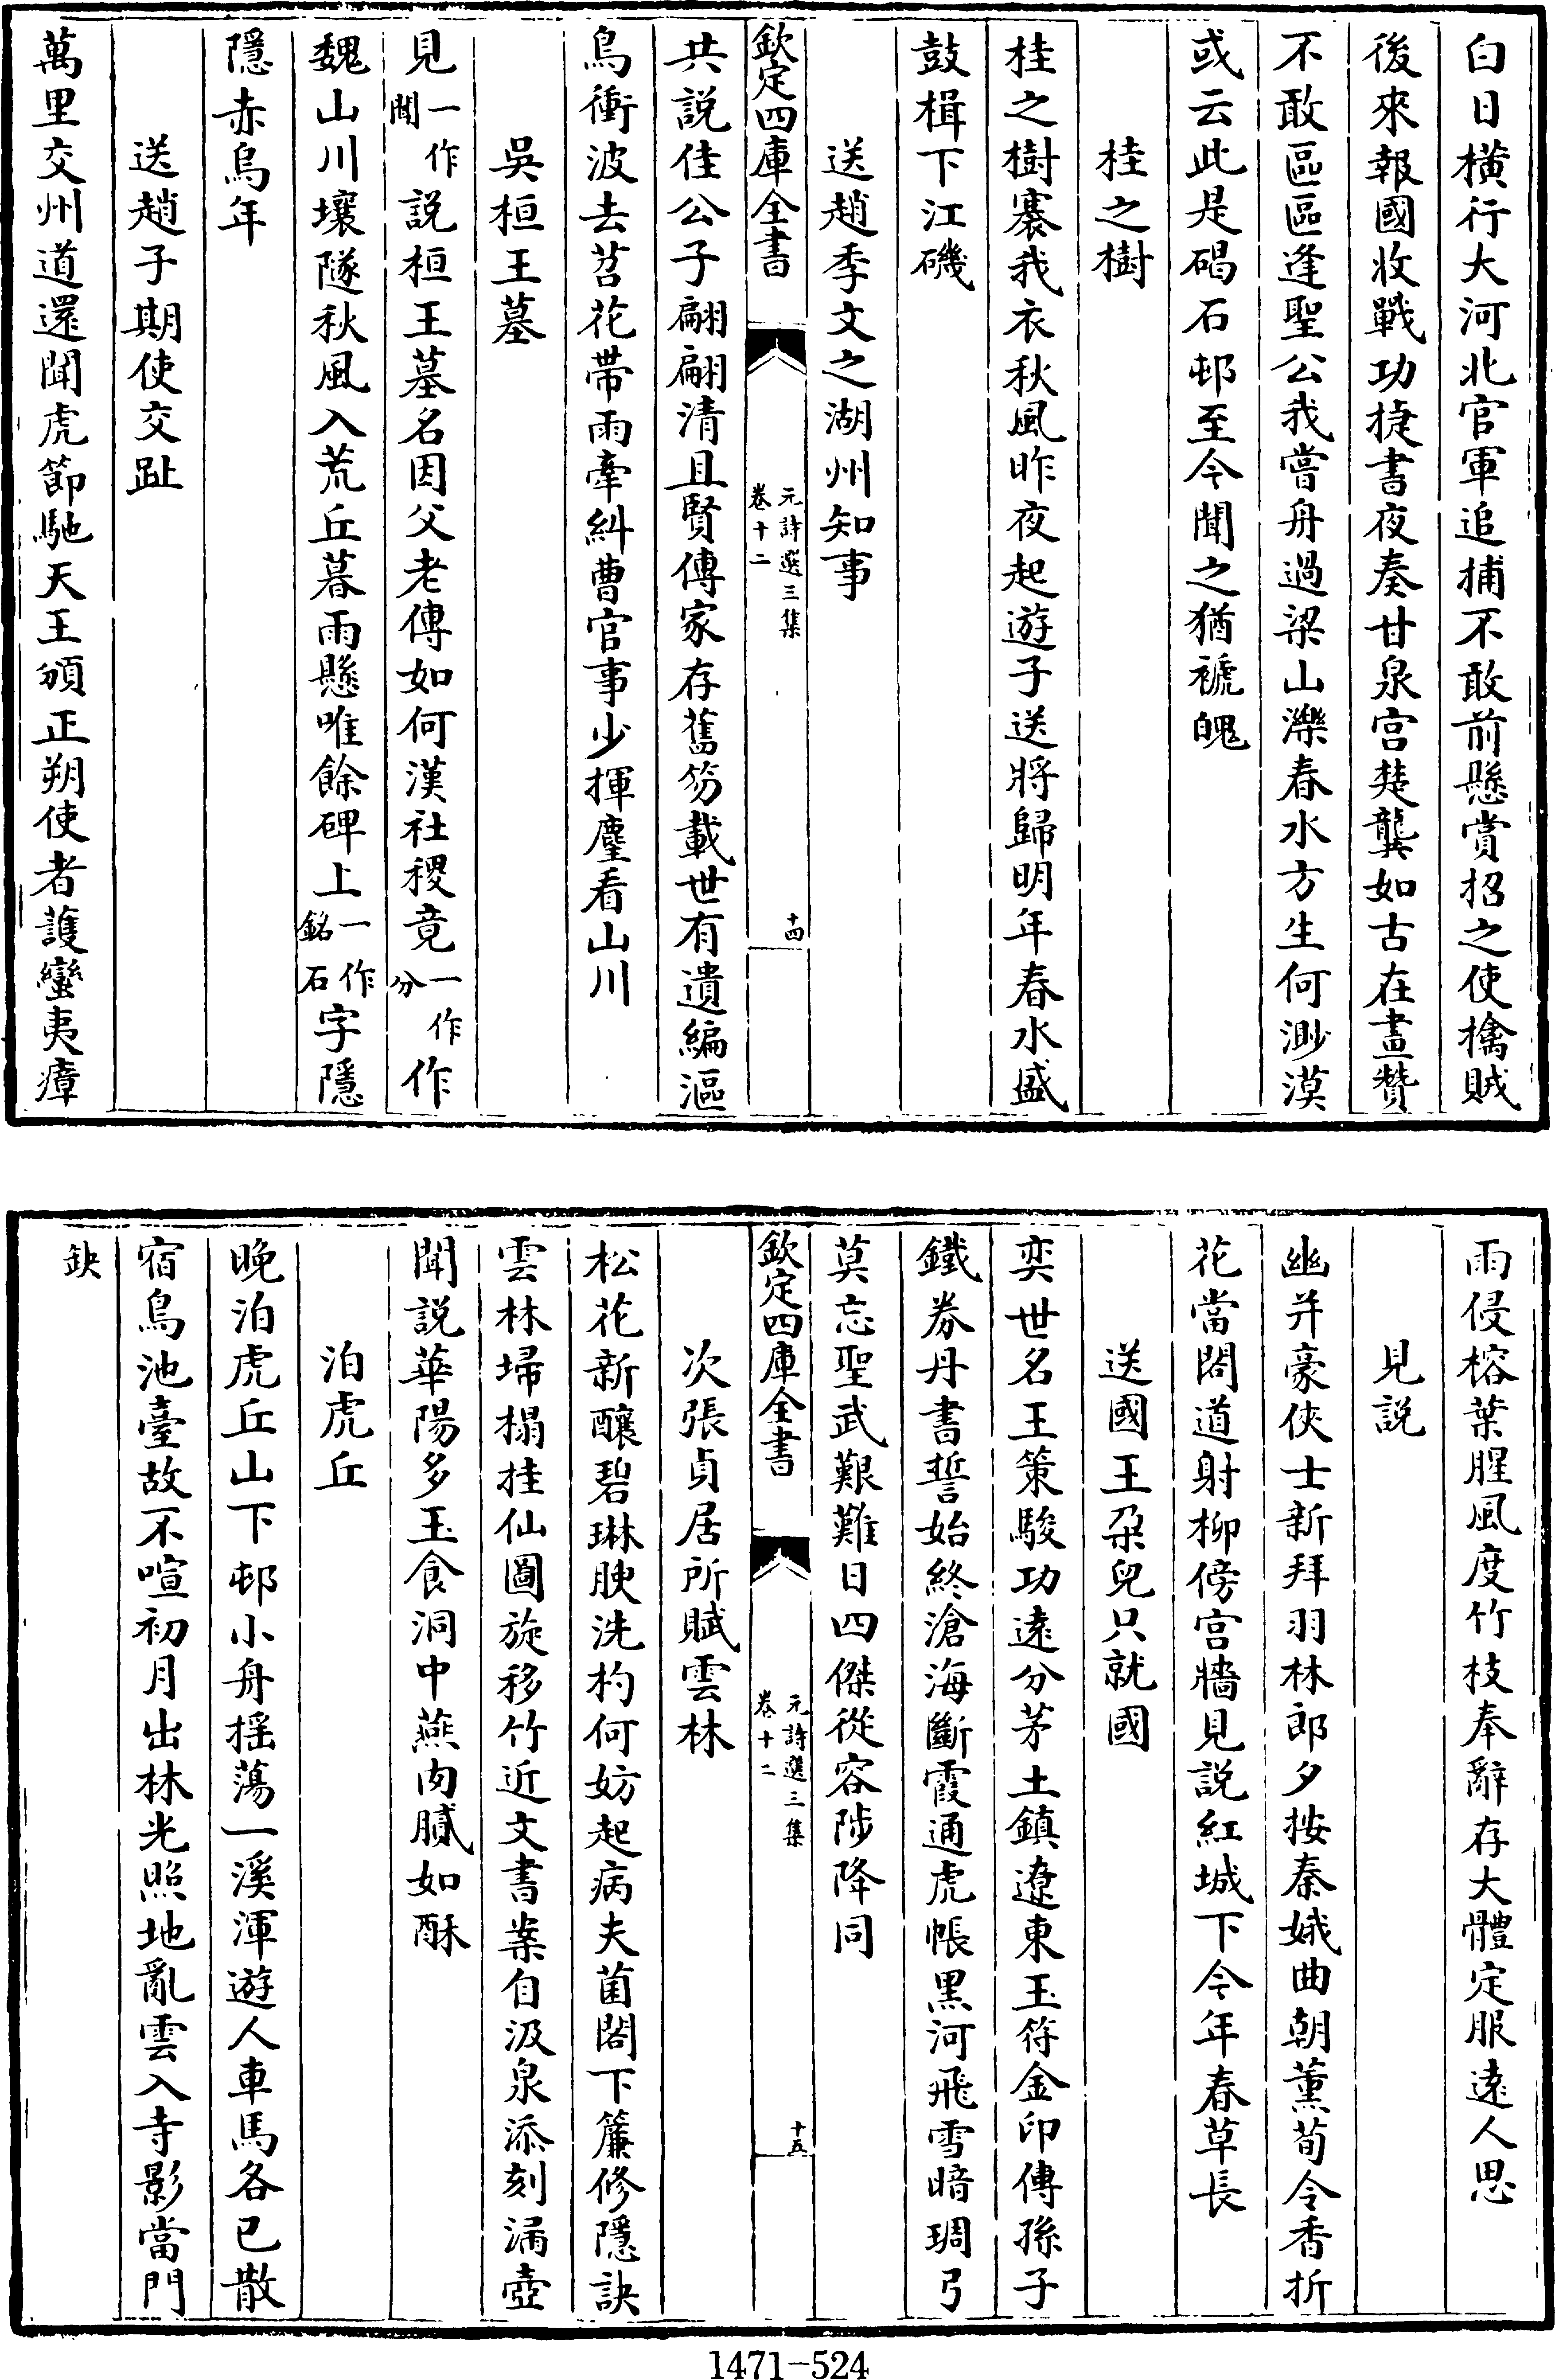 白日橫行大河北官軍追捕不敢前懸賞招之使擒賊
後來報國收戰功捷書夜奏甘泉宫楚龔如古在畫贊
不敢區區逢聖公我嘗舟過梁山濼春水方生何渺漠
或云此是碣石邨至今聞之猶褫魄
桂之樹
桂之樹褰我衣秋風昨夜起遊子送將歸明年春水盛
鼓楫下江磯
送趙季文之湖州知事
欽定四庫全書
元詩選三集
卷十二
十四
共説佳公子翩翩清且賢傳家存舊笏載世有遺編漚
鳥衝波去苕花帶雨牽糾曹官事少揮麈看山川
吳桓王墓
見一作聞説桓王墓名因父老傳如何漢社稷竟一作分作
魏山川壤隧秋風入荒丘暮雨懸唯餘碑上一作銘石字隱
隱赤烏年
送趙子期使交趾
萬里交州道還聞虎節馳天王頒正朔使者護蠻夷瘴
雨侵榕葉腥風度竹枝奉辭存大體定服遠人思
見説
幽并豪俠士新拜羽林郎夕按秦娥曲朝薰荀令香折
花當閤道射柳傍宫牆見説紅城下今年春草長
送國王朶兒只就國
奕世名王策駿功遠分茅土鎮遼東玉符金印傳孫子
鐵券丹書誓始終滄海斷霞通虎帳黑河飛雪暗琱弓
莫忘聖武艱難日四傑從容陟降同
欽定四庫全書
元詩選三集
卷十二
十五
次張貞居所賦雲林
松花新釀碧琳腴洗杓何妨起病夫菌閣下簾修隱訣
雲林埽榻挂仙圖旋移竹近文書案自汲泉添刻漏壺
聞説華陽多玉食洞中燕肉膩如酥
泊虎丘
晚泊虎丘山下邨小舟揺蕩一溪渾遊人車馬各已散
宿鳥池臺故不喧初月出林光照地亂雲入寺影當門
缺
1471-524